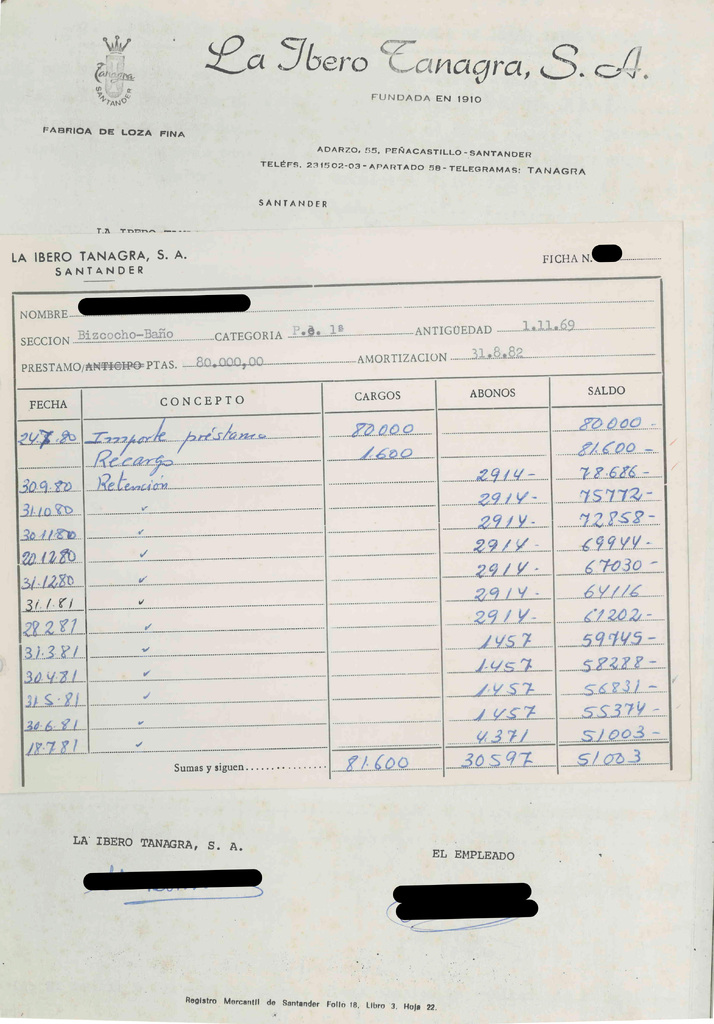 Tanagra
SANTANDER
La Ibero Tanagra, S. A.
FUNDADA EN 1910
FABRICA DE LOZA FINA
ADARZO, 55, PEÑACASTILLO - SANTANDER
TELÉFS. 231502-03 - APARTADO 58 - TELEGRAMAS: TANAGRA
SANTANDER
LA IBERO TANAGRA, S. A.
SANTANDER
FICHA N.
NOMBRE
SECCION Bizcocho-Baño CATEGORIA P.e. 1ª ANTIGÜEDAD 1.11.69
PRESTAMO/ANTICIPO PTAS. 80.000,00 AMORTIZACION 31.8.82
FECHA CONCEPTO CARGOS ABONOS SALDO
24.7.80 Importe préstamo 80000 80000-
Recargo 1.600 81.600-
30.9.80 Retención 2914- 78.686-
31.10.80 " 2914- 75772-
30.11.80 " 2914- 72858-
20.12.80 " 2914- 69944-
31.12.80 " 2914- 67030-
31.1.81 " 2914- 64116
28.2.81 " 2914- 61202-
31.3.81 " 1457 59745-
30.4.81 " 1457 58288-
31.5.81 " 1457 56831-
30.6.81 " 1457 55374-
18.7.81 " 4.371 51003-
Sumas y siguen 81.600 30597 51003
LA IBERO TANAGRA, S. A.
EL EMPLEADO
Registro Mercantil de Santander Folio 18, Libro 3, Hoja 22.